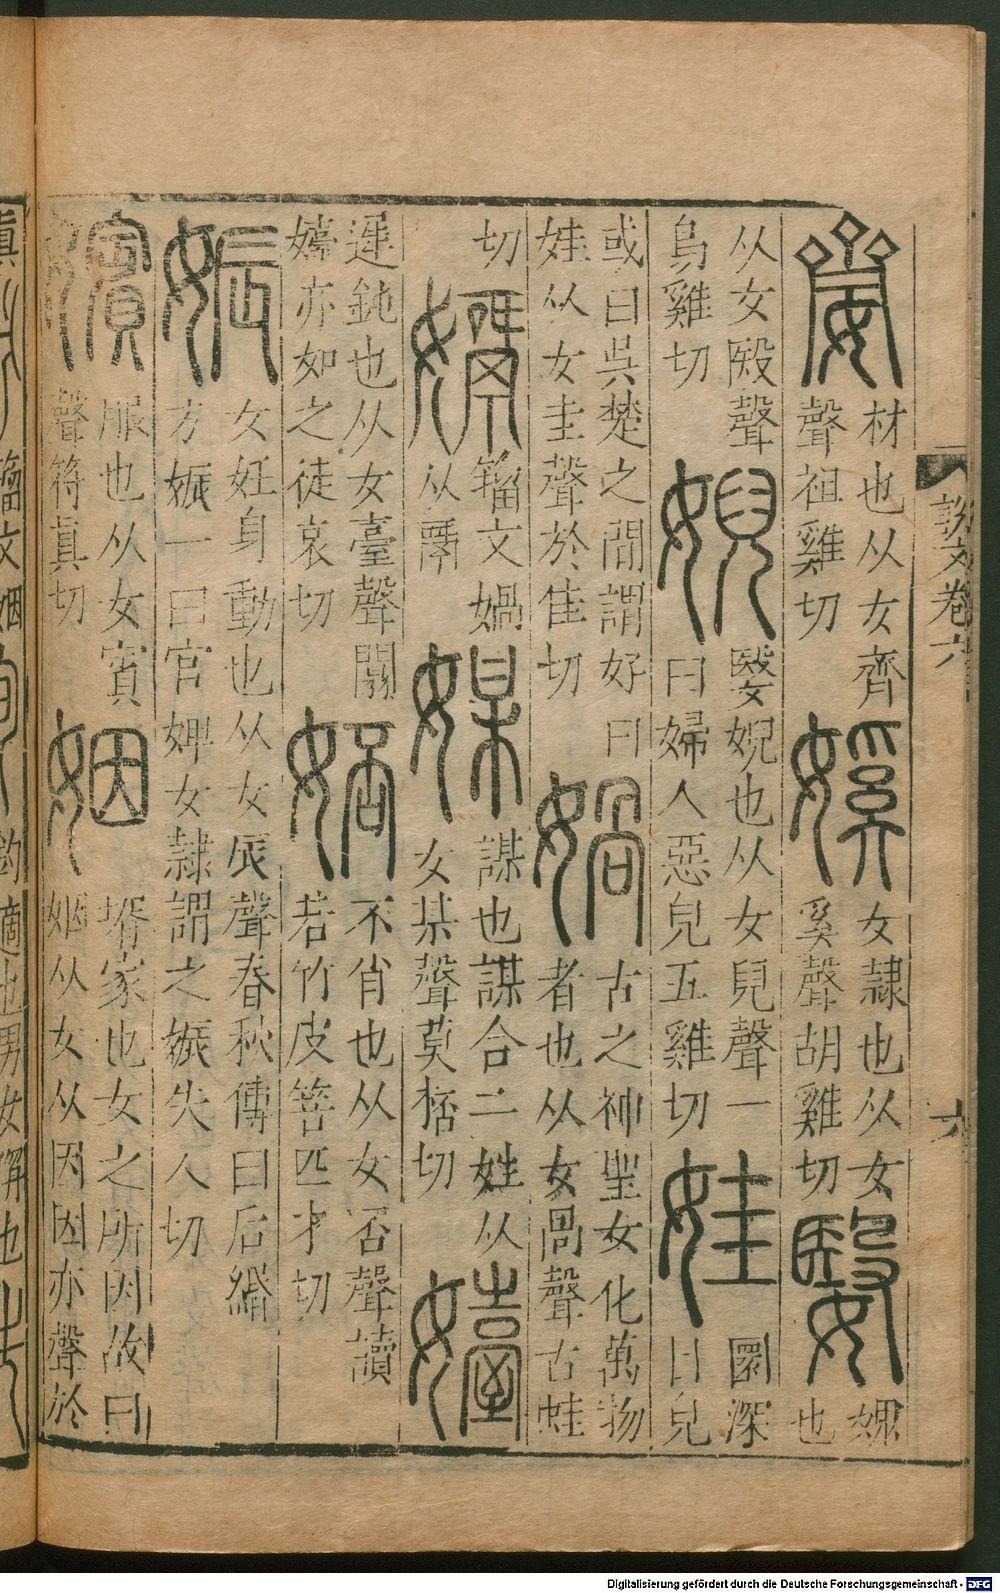 齌 材也从女齊
聲祖雞切
㜎 女隷也从女
奚聲胡雞切
嫛 婗
也
从女殹聲
烏雞切
婗 嫛婗也从女兒聲一
曰婦人惡皃五雞切
娃 圜深
目皃
或曰吳楚之間謂好曰
娃从女圭聲於佳切
媧 古之神聖女化萬物
者也从女咼聲古蛙
切
籀文媧
从
媒 謀也謀合二姓从
女某聲莫桮切
嬯
遲鈍也从女臺聲闒
嬯亦如之徒哀切
娝 不肖也从女否聲讀
若竹皮箁匹才切
娠 女妊身動也从女辰聲春秋傳曰后緡
方娠一曰官婢女隷謂之娠失人切
嬪 服也从女賓
聲符眞切
姻 壻家也女之所因故曰
姻从女从因因亦聲於
說文卷六
六
籀文姻
鈞適也男女併也
Digitalisierung gefördert durch die Deutsche Forschungsgemeinschaft - DFG